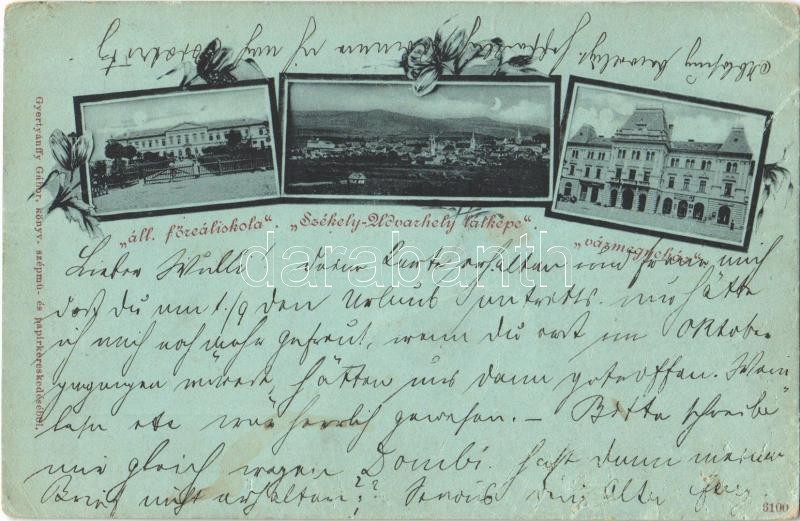 Gyertyánffy Gábor, könyv-, szépmű- és papirkereskedéséből,
„áll. főreáliskola“
„Székely-Udvarhely látképe“
„vármegyeház“
darabanth
Lieber Willi! deine Karte erhalten und freue mich
dass du am 1./9 den Urlaub antrittst. nur hätte
ich mich noch mehr gefreut, wenn du erst im Oktober
gegangen wärest, hätten uns dann getroffen. Wein-
lese etc wär herrlich gewesen. – Bitte schreibe
mir gleich wegen Dombi. hast denn meinen
Brief nicht erhalten?? Servus dein Alter
3100